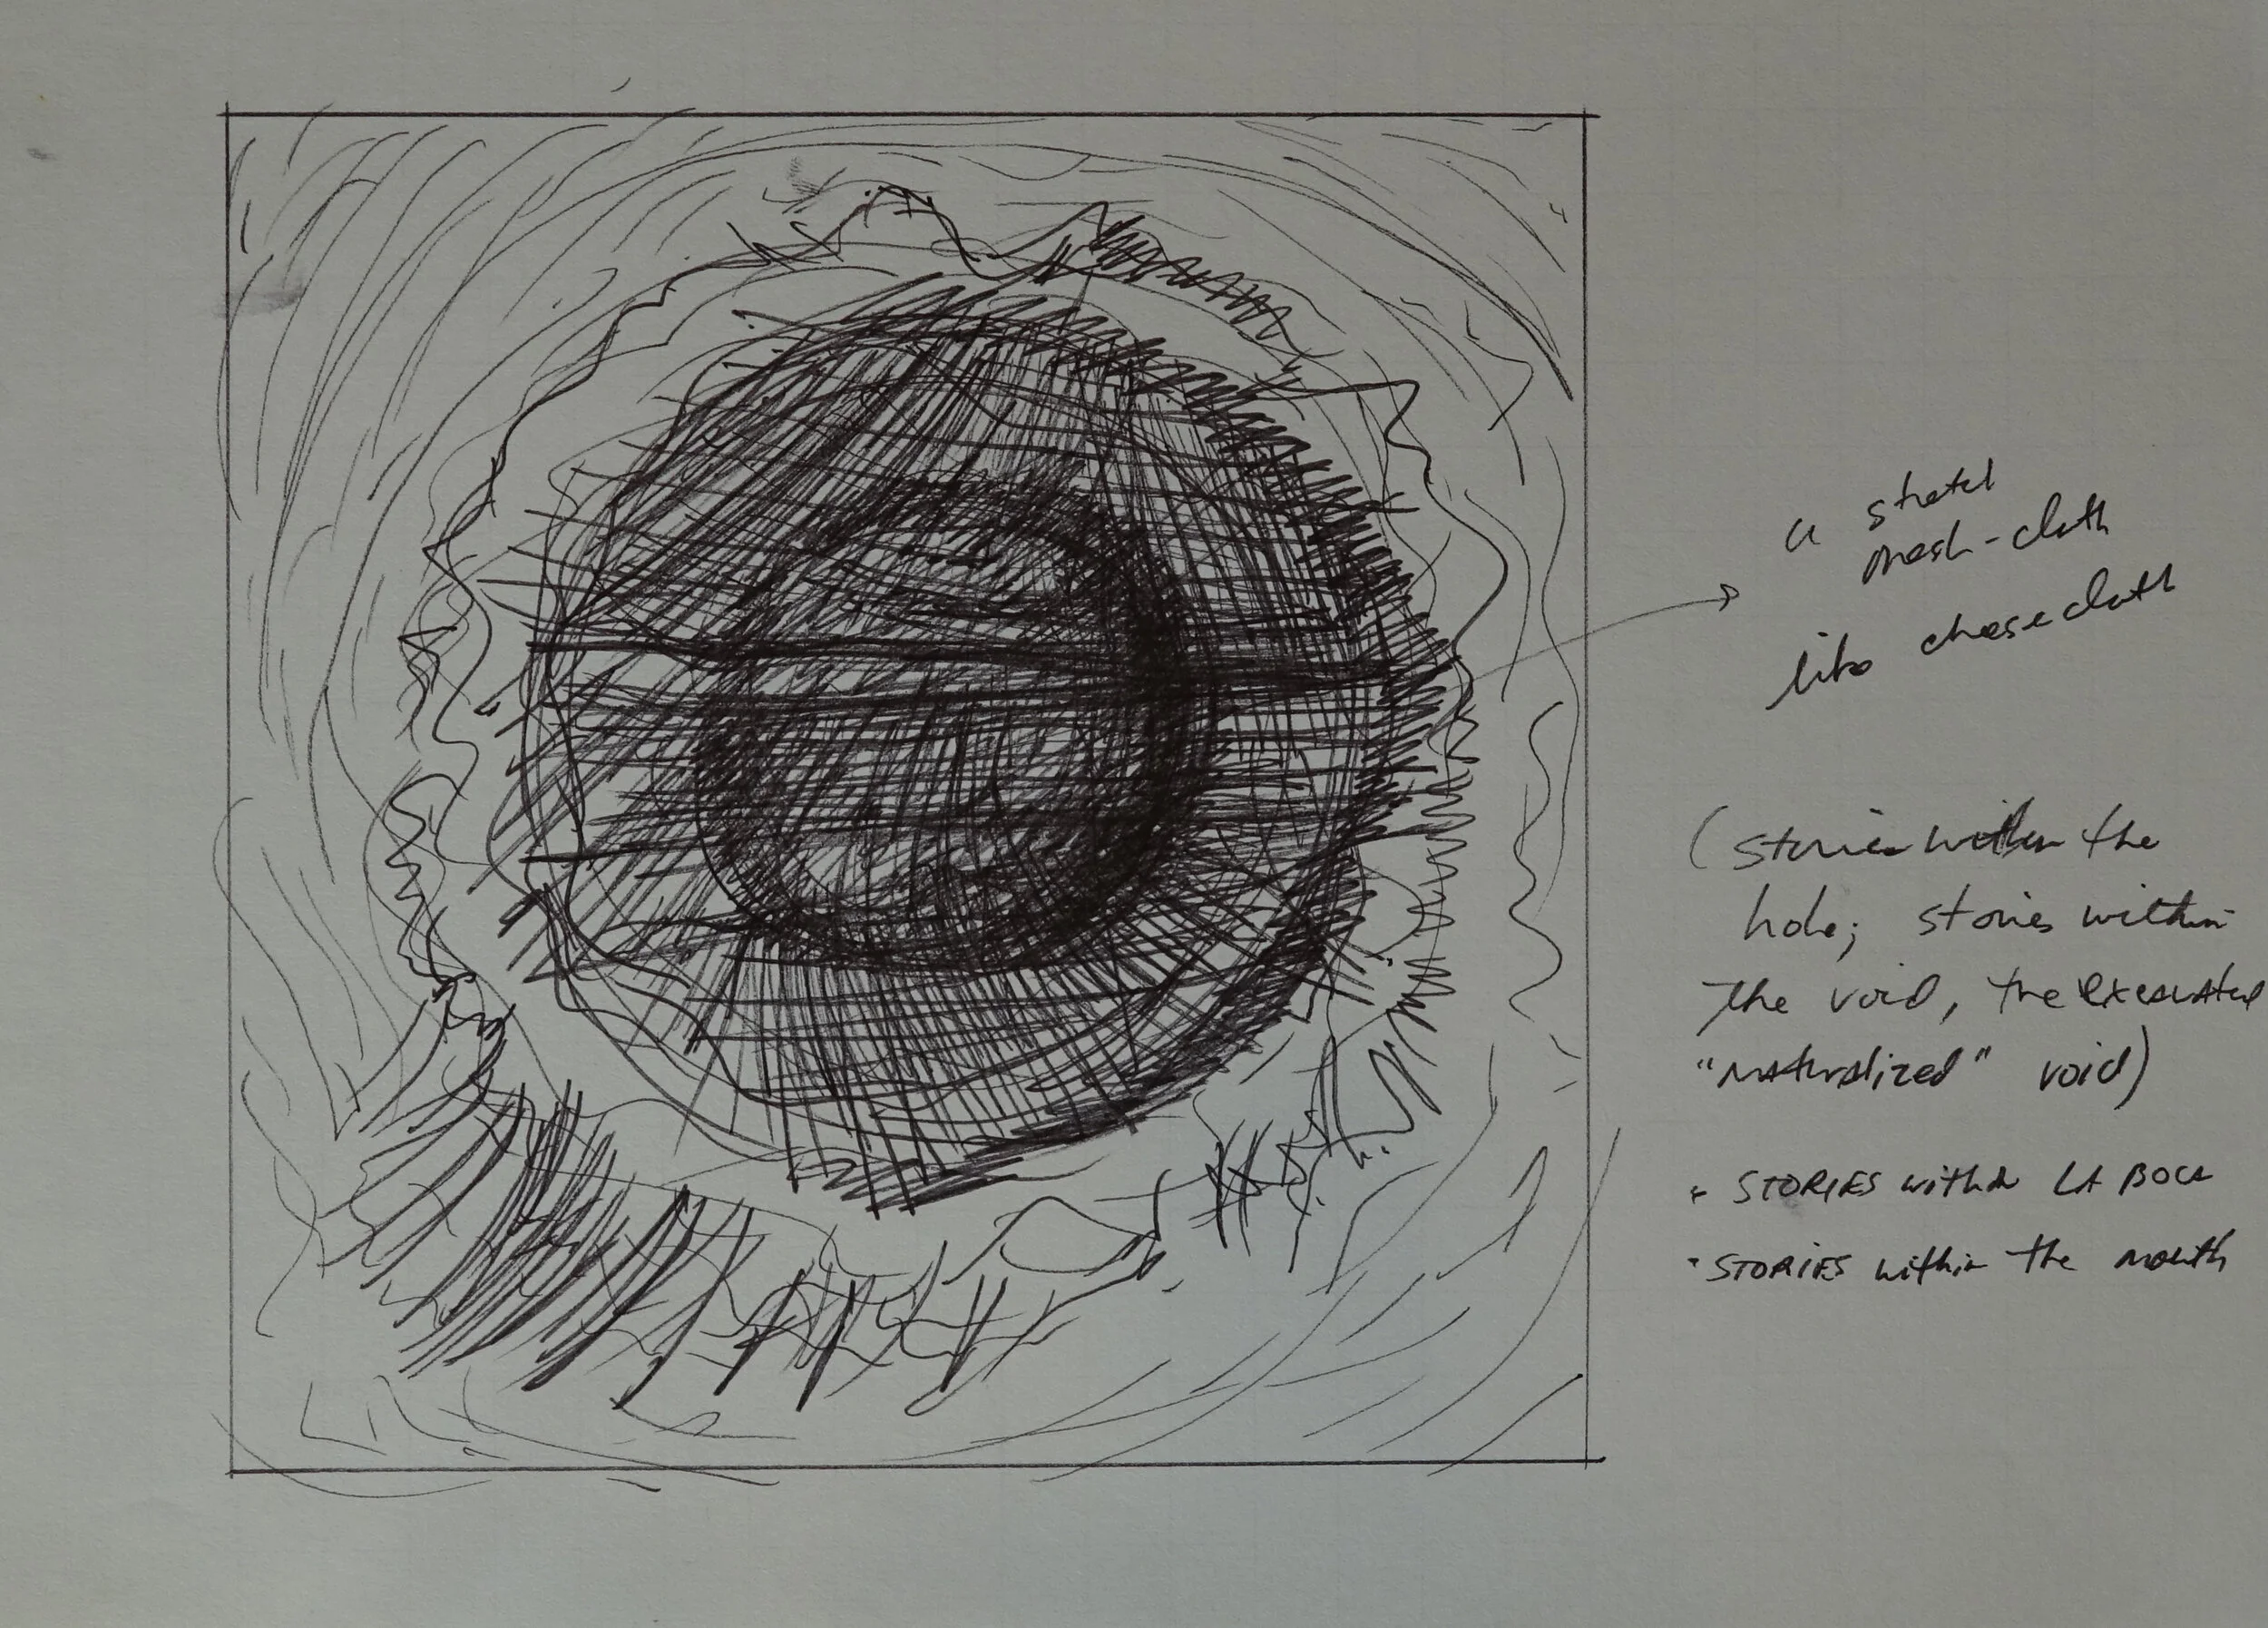 a stretch
mesh-cloth
like cheesecloth
(stories within the
hole; stories within
the void, the excavated
"naturalized" void)
• STORIES within LA BOCA
• STORIES within the mouth